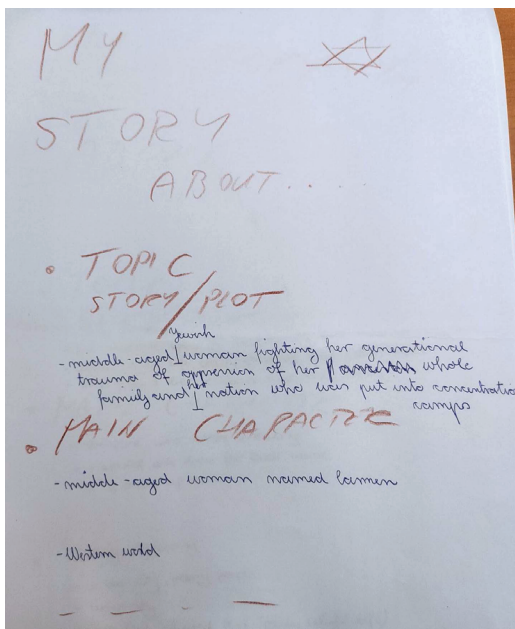 MY
STORY
ABOUT.....
TOPIC
STORY/PLOT
Jewish
- middle-aged woman fighting her generational
trauma of oppression of her whole
her
family and nation who was put into concentration
camps
MAIN CHARACTER
- middle-aged woman named Carmen
- Western world